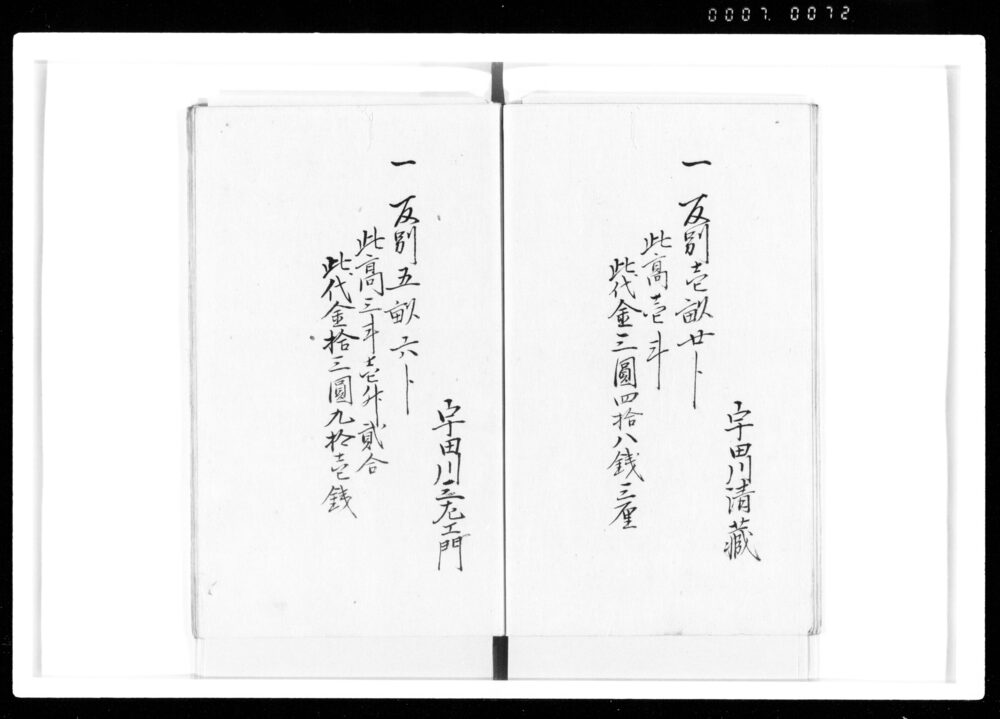 0007.0072
宇田川清藏
一 反別壱畝廿卜
此高壱斗
此代金三圓四拾八銭三厘
宇田川三左エ門
一 反別五畝六卜
此高三斗壱升貳合
此代金拾三圓九拾壱銭